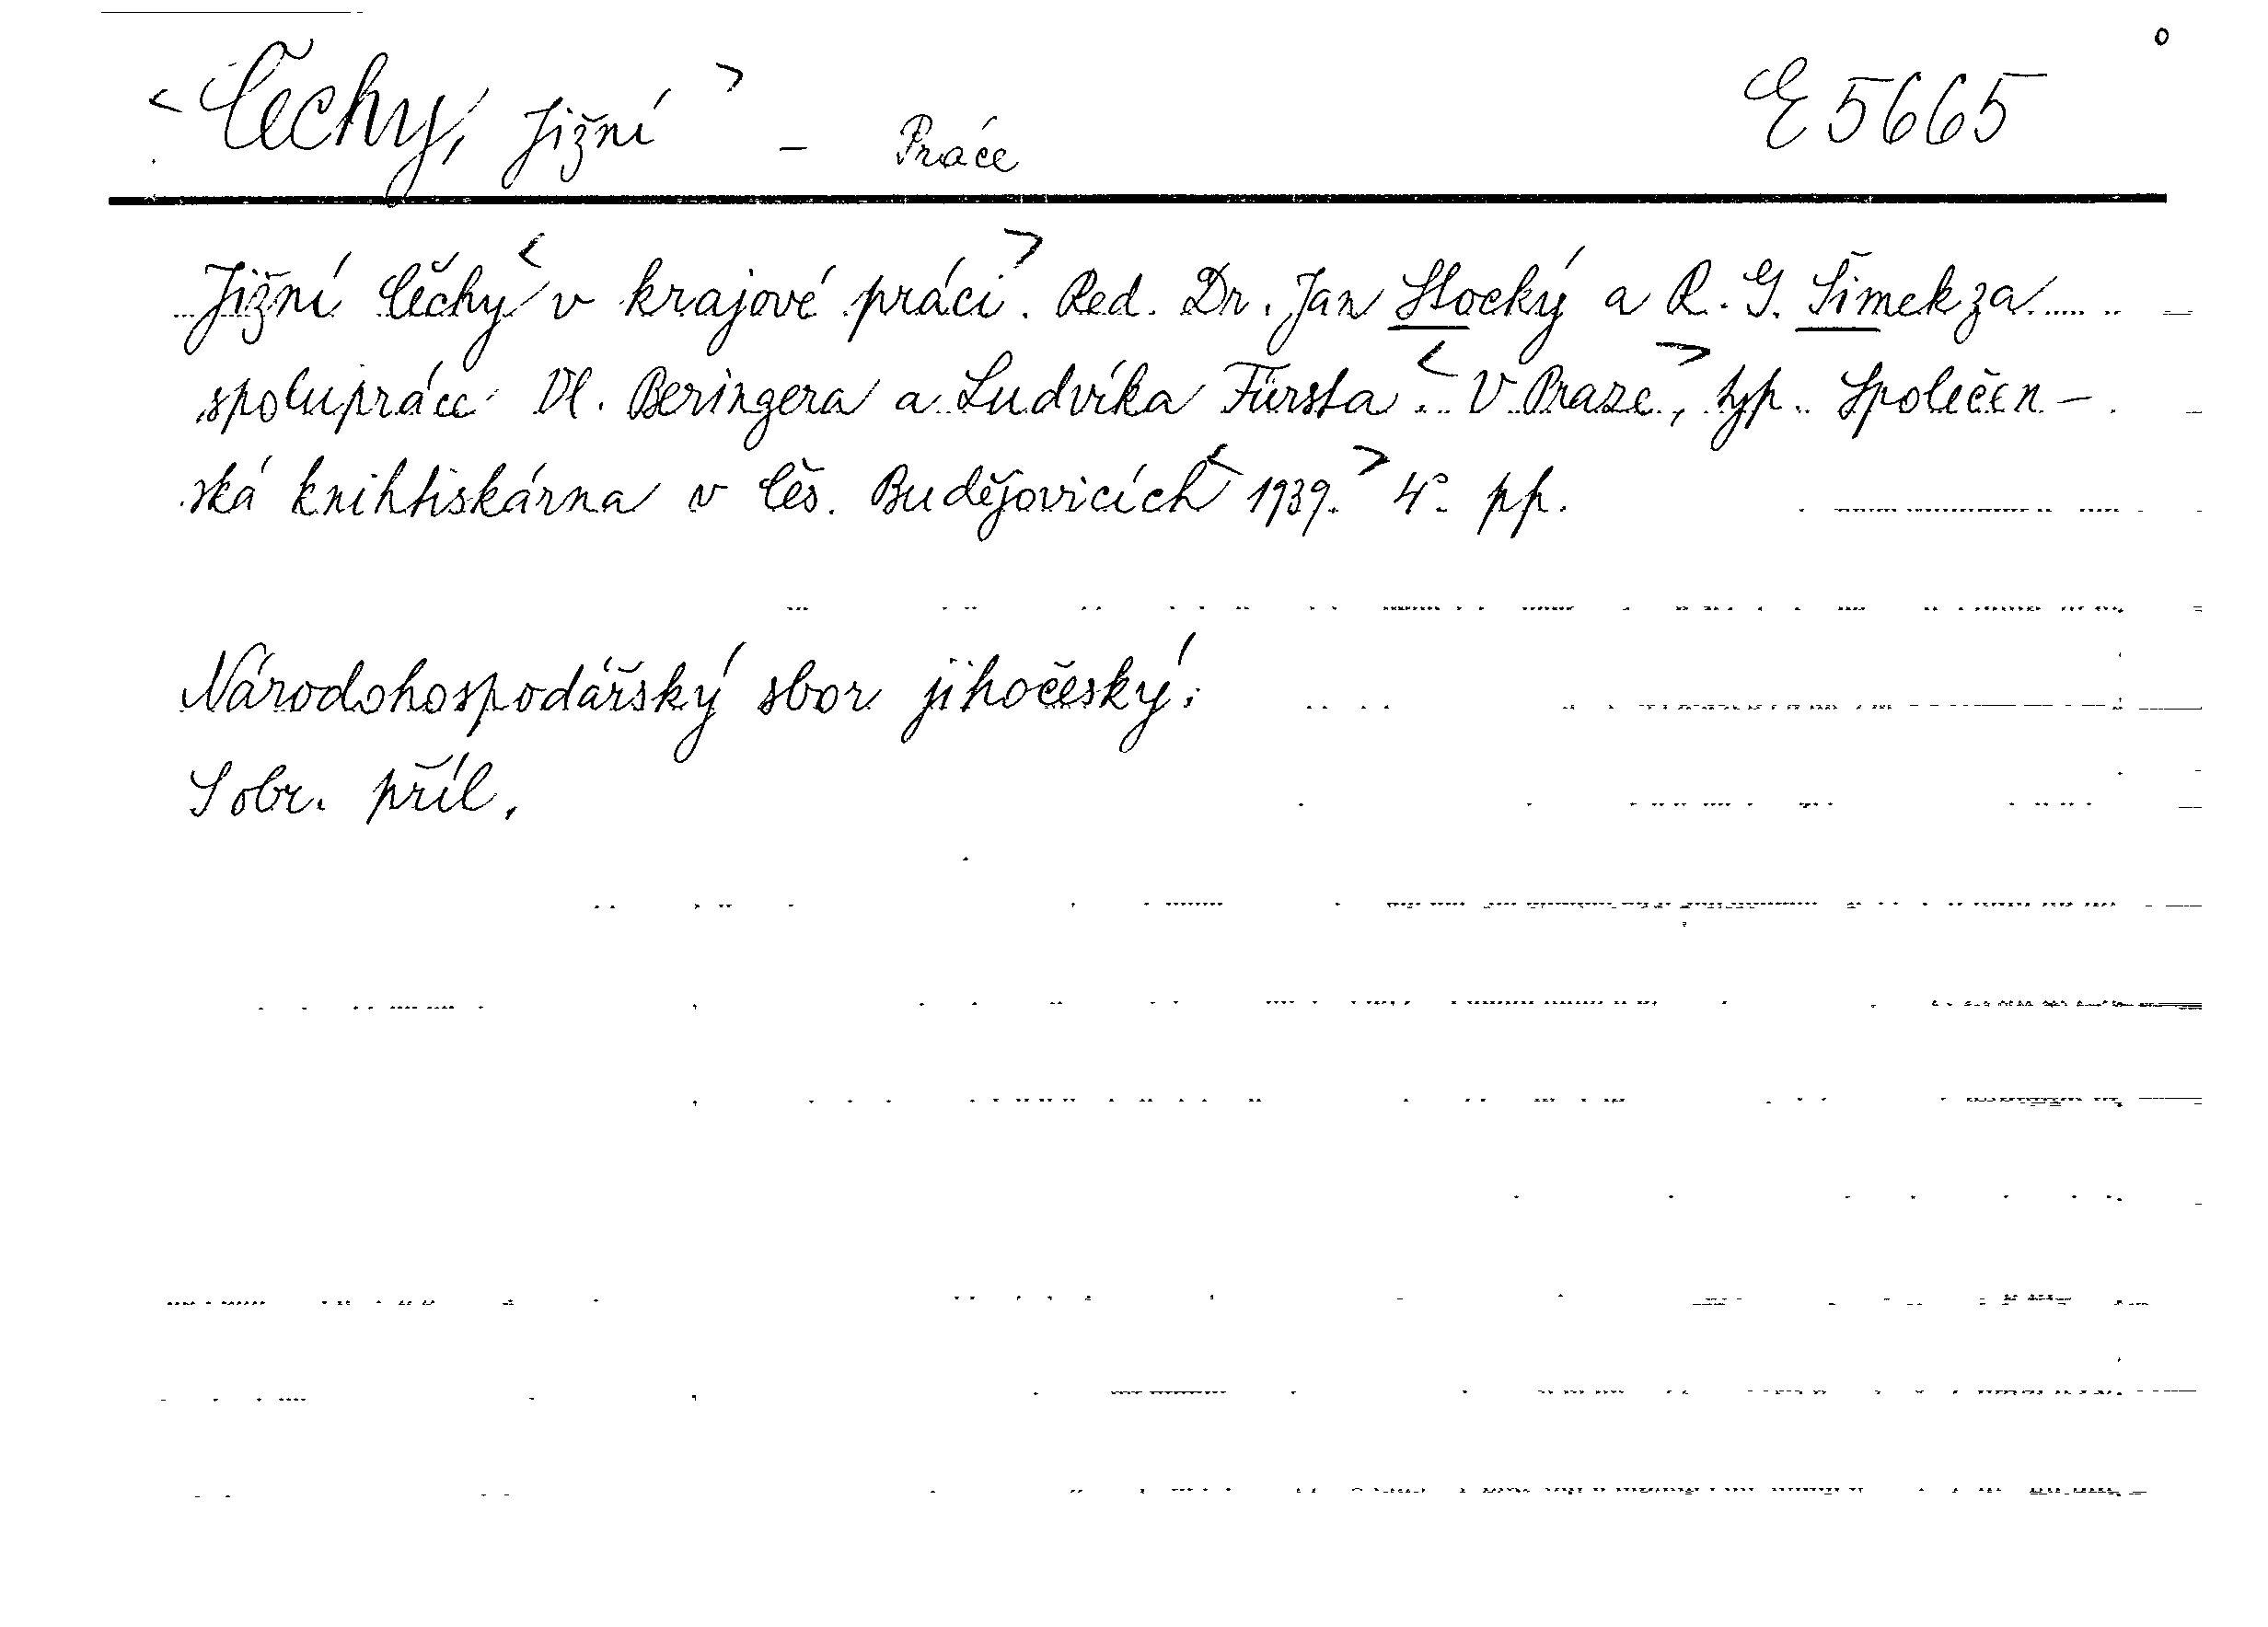 < Čechy, Jižní > - Práce E 5665
Jižní Čechy < v krajové práci >. Red. Dr. Jan Stocký a R. G. Šimek za
spolupráce Vl. Beringera a Ludvíka Fürsta. < V Praze >, typ. Společen-
ská knihtiskárna v Čes. Budějovicích < 1939. > 4°. pp.
Národohospodářský sbor jihočeský.
S obr. příl.